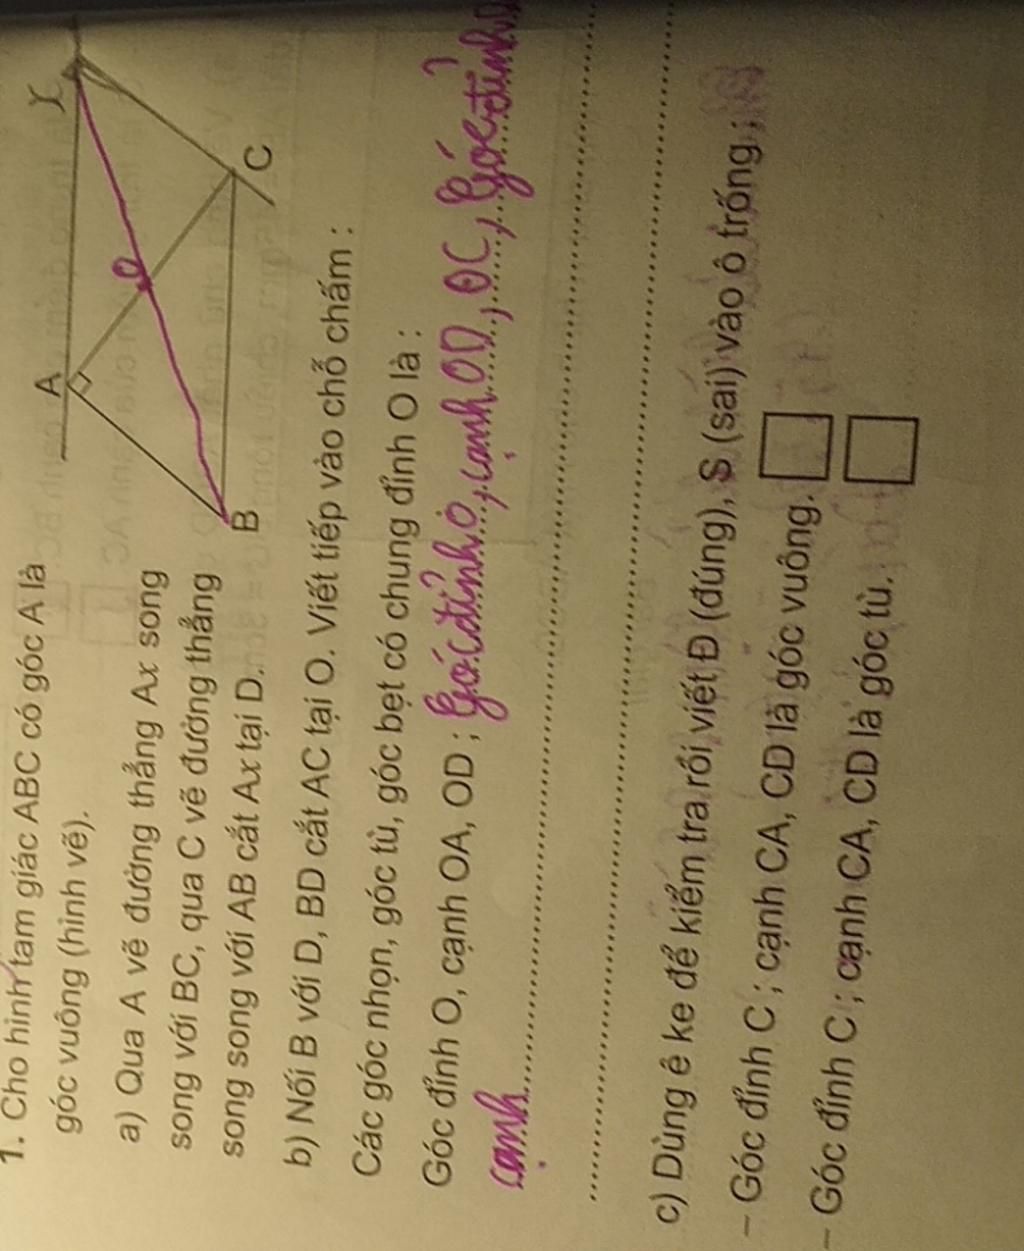 1. Cho hình tam giác ABC có góc A là
góc vuông (hình vẽ).
a) Qua A vẽ đường thẳng Ax song
song với BC, qua C vẽ đường thẳng
song song với AB cắt Ax tại D.
A
x
O
B
C
b) Nối B với D, BD cắt AC tại O. Viết tiếp vào chỗ chấm :
Các góc nhọn, góc tù, góc bẹt có chung đỉnh O là :
Góc đỉnh O, cạnh OA, OD ; Góc đỉnh O, cạnh OD, OC, Góc đỉnh O
cạnh
c) Dùng ê ke để kiểm tra rồi viết Đ (đúng), S (sai) vào ô trống :
– Góc đỉnh C ; cạnh CA, CD là góc vuông.
– Góc đỉnh C ; cạnh CA, CD là góc tù.